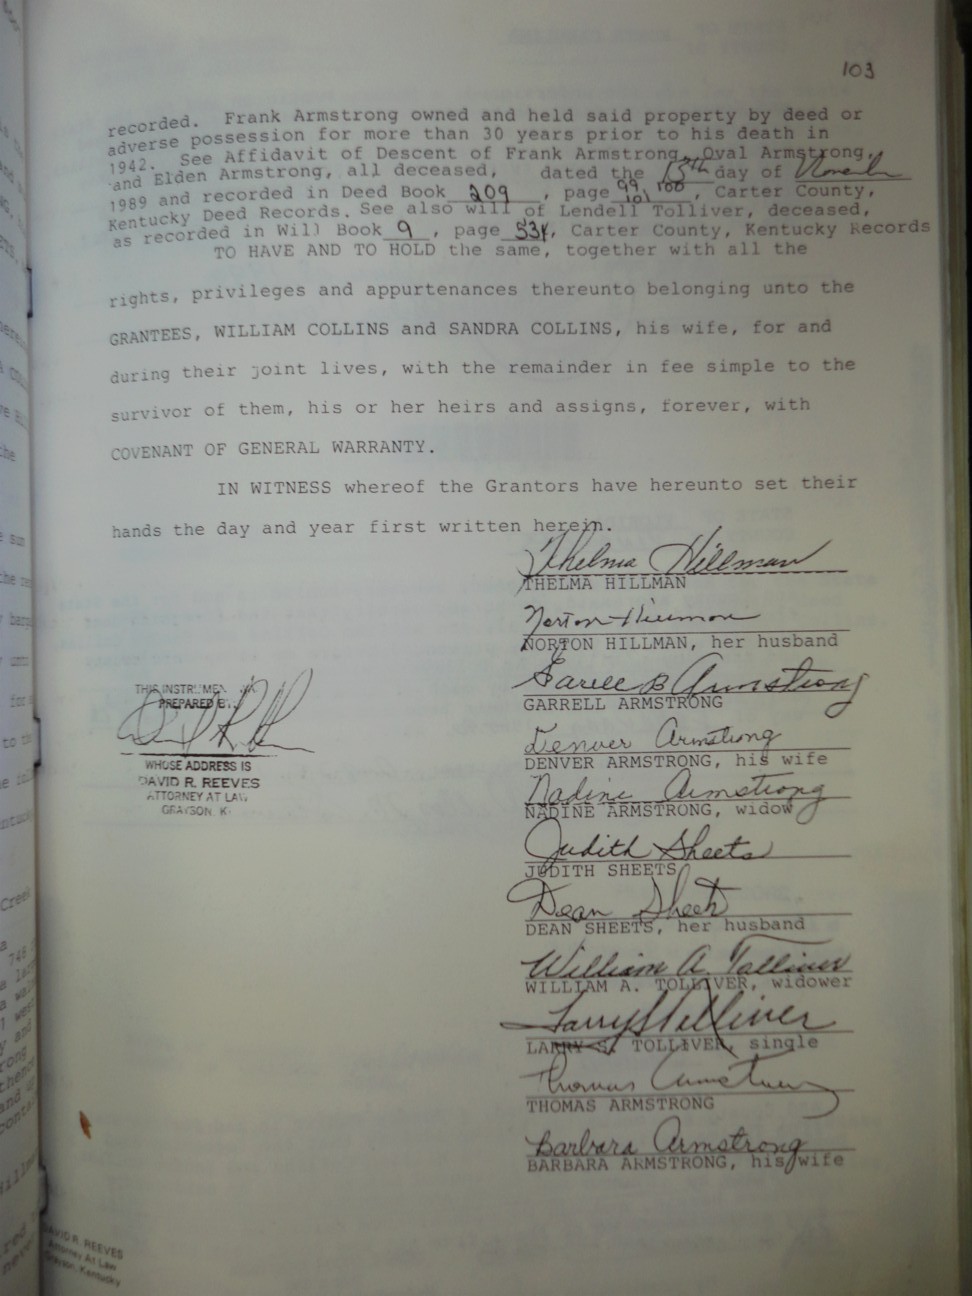 103
recorded. Frank Armstrong owned and held said property by deed or
adverse possession for more than 30 years prior to his death in
1942. See Affidavit of Descent of Frank Armstrong, Oval Armstrong,
and Elden Armstrong, all deceased, dated the 15th day of November
1989 and recorded in Deed Book 209, page 99, 100, 101, Carter County,
Kentucky Deed Records. See also will of Lendell Tolliver, deceased,
as recorded in Will Book 9, page 534, Carter County, Kentucky Records
TO HAVE AND TO HOLD the same, together with all the
rights, privileges and appurtenances thereunto belonging unto the
GRANTEES, WILLIAM COLLINS and SANDRA COLLINS, his wife, for and
during their joint lives, with the remainder in fee simple to the
survivor of them, his or her heirs and assigns, forever, with
COVENANT OF GENERAL WARRANTY.
IN WITNESS whereof the Grantors have hereunto set their
hands the day and year first written herein.
Thelma Hillman
THELMA HILLMAN
Norton Hillman
NORTON HILLMAN, her husband
Garell B Armstrong
GARRELL ARMSTRONG
Denver Armstrong
DENVER ARMSTRONG, his wife
Nadine Armstrong
NADINE ARMSTRONG, widow
Judith Sheets
JUDITH SHEETS
Dean Sheets
DEAN SHEETS, her husband
William A. Tolliver
WILLIAM A. TOLLIVER, widower
Larry S Tolliver
LARRY S. TOLLIVER, single
Thomas Armstrong
THOMAS ARMSTRONG
Barbara Armstrong
BARBARA ARMSTRONG, his wife
THIS INSTRUMENT
PREPARED BY
WHOSE ADDRESS IS
DAVID R. REEVES
ATTORNEY AT LAW
GRAYSON, K
DAVID R. REEVES
Attorney At Law
Grayson, Kentucky